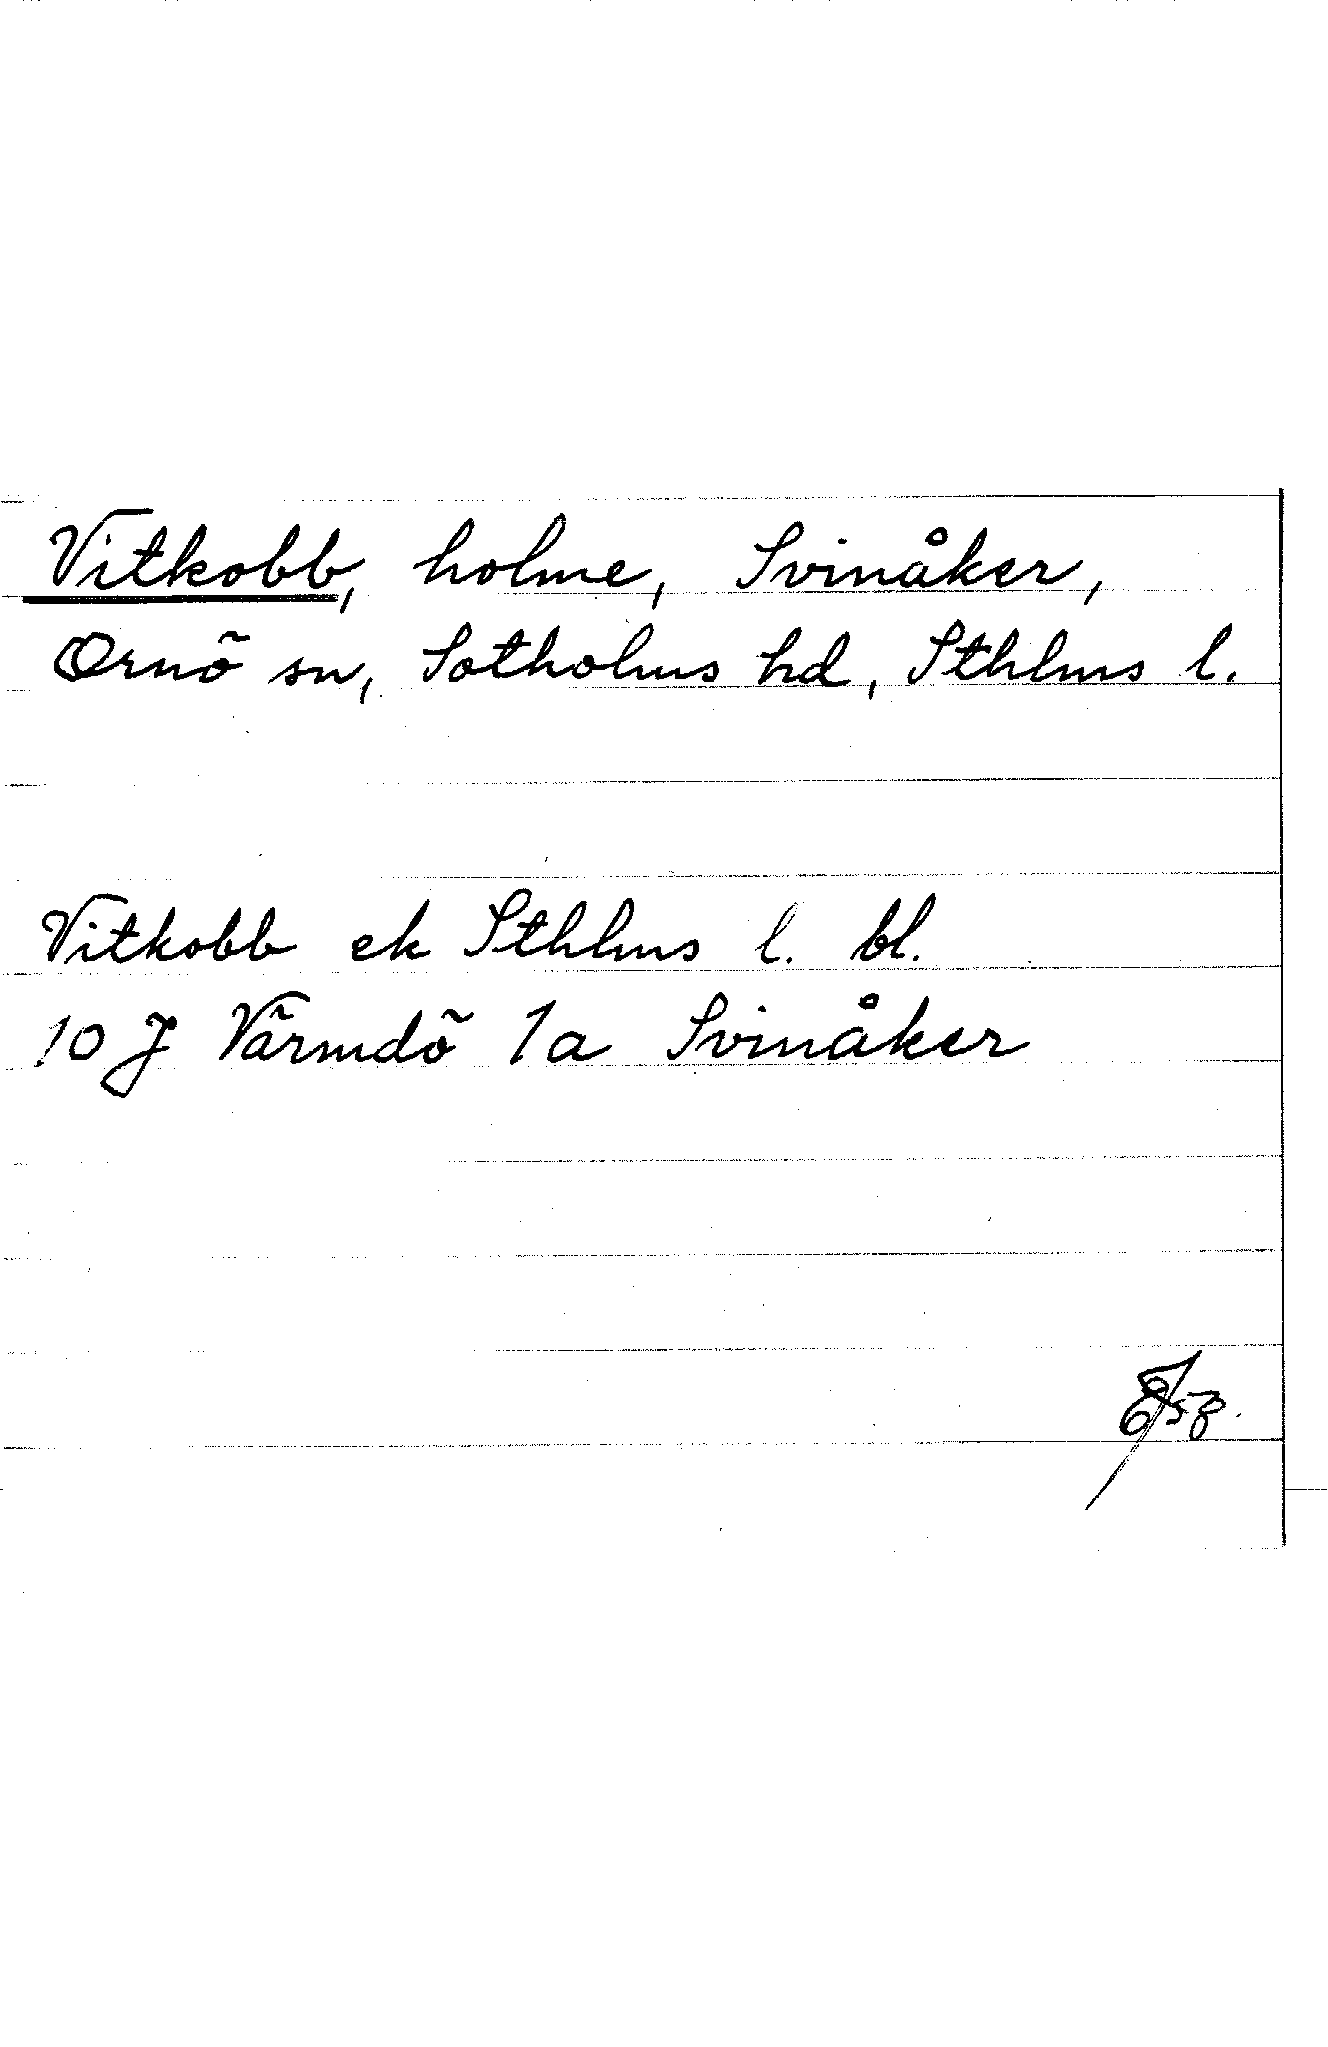 Vitkobb, holme, Svinåker,
Ornö sn, Sotholms hd, Sthlms l.
Vitkobb ek Sthlms l. bl.
10 J Värmdö 1a Svinåker